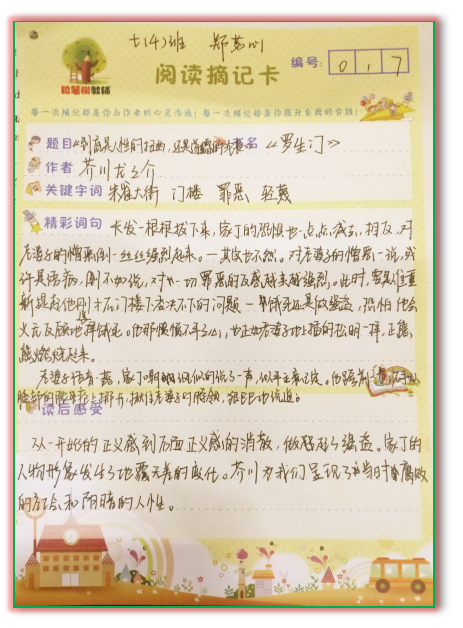 七(4)班 郑茗心
铅笔树教辅
阅读摘记卡
编号: 017
每一次摘记都是你与作者的心灵沟通! 每一次摘记都是你提升自我的实践!
题目《到底是人性的扭曲,还是道德的 书名《罗生门》
作者 芥川龙之介
关键字词 朱雀大街 门楼 罪恶 轻蔑
精彩词句 长发一根根拔下来,家丁的恐惧也一点点减去,相反,对
老婆子的憎恶倒一丝丝强烈起来。一其实也不然。对老婆子的憎恶一说,或
许是语病,倒不如说,对一切罪恶的反感越来越强烈。此时,要是谁重
新提起他刚才在门楼下决决不下的问题—饿死还是做强盗,恐怕他会
义无反顾地选择饿死。他那恨恨不平之心,也正如老婆子地上插的松明一样,正熊
熊燃烧起来。
老婆子话音一落,家丁嘲讽似的说了一声,似乎主意已定。他跨前一
脸
揪住老婆子的脖领,狠巴巴地说道:
读后感受
从一开始的正义感到后面正义感的消散,做起了强盗。家丁的
人物形象发生了地覆天翻的变化。芥川为我们呈现了当时腐败
的社会和阴暗的人性。